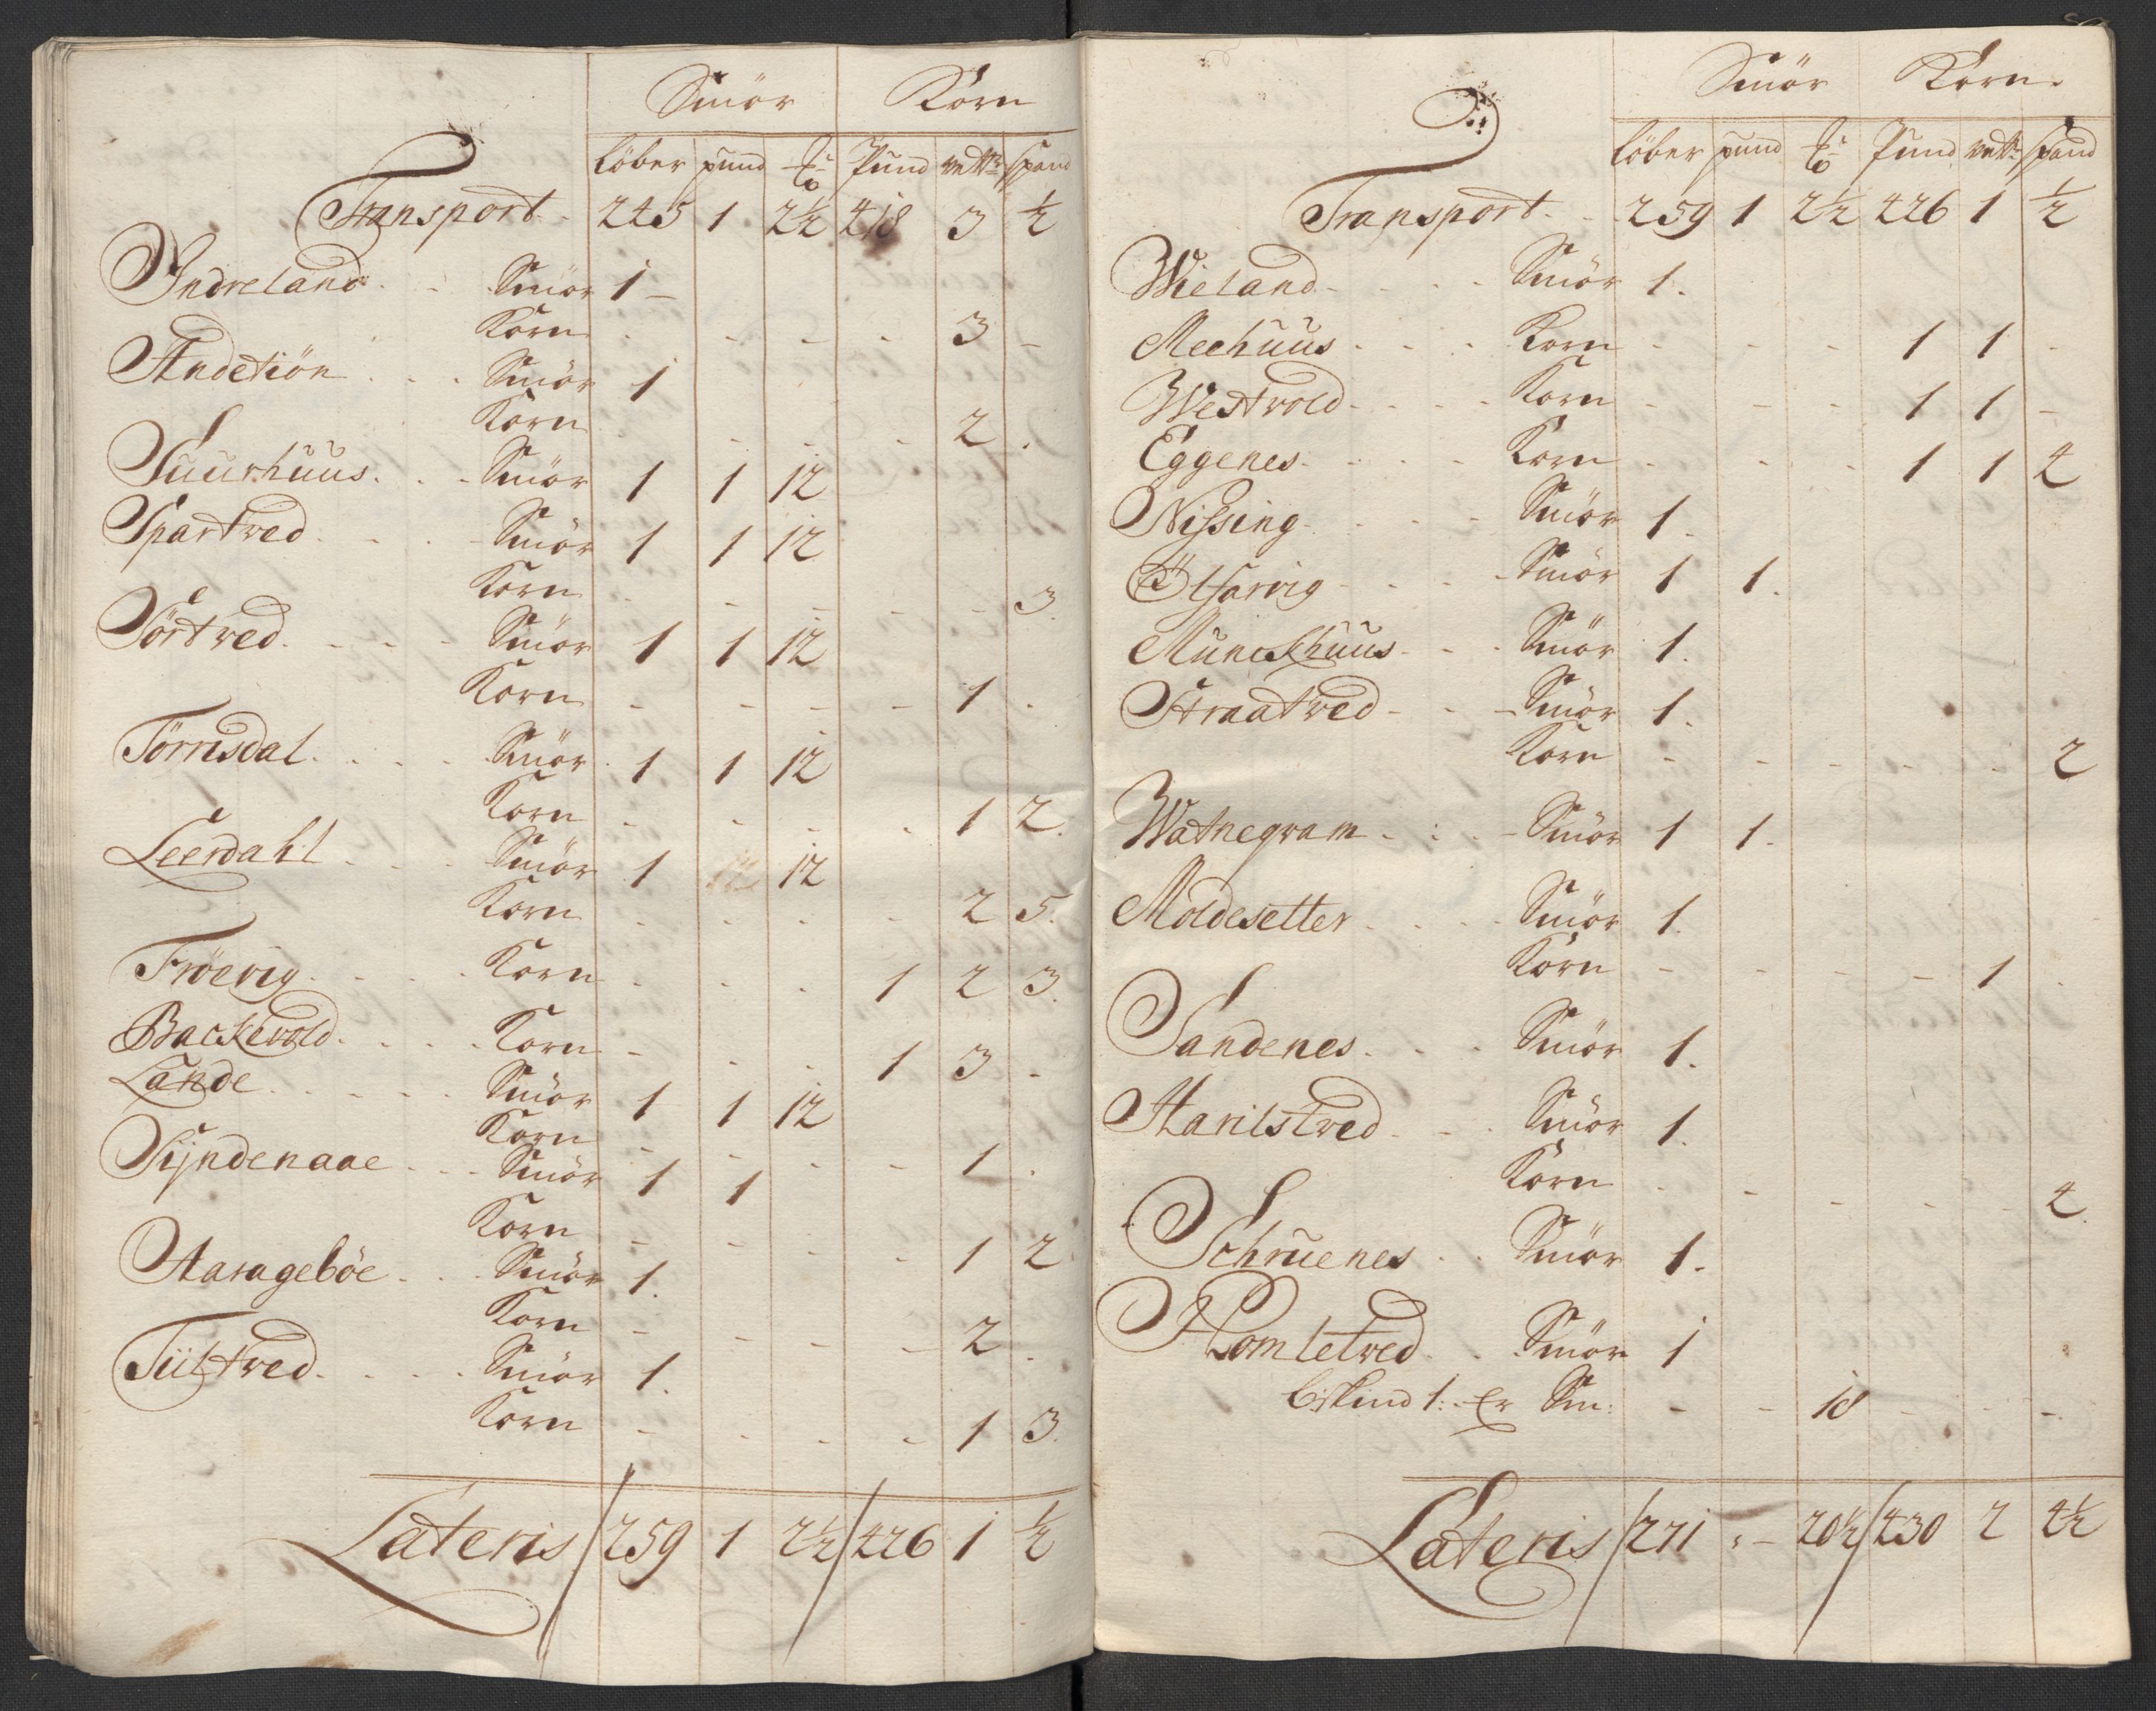 Smör Korn
Löber pund Pund vett: spand
Transport 245 1 2½ 418 3 ½
Indreland Smör 1 –
Korn 3 –
Andetiön Smör 1
Korn 2 .
Suurhuus Smör 1 1 12
Spartved Smör 1 1 12
Korn 3.
Törtved Smör 1 1 12
Korn 1 .
Törrisdal Smör 1 1 12
Korn 1 2.
Leerdahl Smör 1 12
Korn 2 5.
Fröevig Korn 1 2 3.
Backevold Korn 1 3 .
Lande Smör 1 1 12
Korn 1 .
Sÿndenaae Smör 1 1
Korn 1 2
Aarageböe Smör 1.
Korn 2 .
Tiiltved Smör 1.
Korn 1 3.
Lateris 259 1 2½ 426 1 ½
Smör Korn.
Löber pund Pund vett: spand
Transport 259 1 2½ 426 1 ½
Wieland Smör 1.
Meehuus Korn 1 1 -
Westvold Korn 1 1 -
Eggenes Korn 1 1 4
Nissing Smör 1.
Ötharvig Smör 1 1.
Munckhuus Smör 1.
Straatved Smör 1.
Korn 2
Watnegram Smör 1 1.
Moldesetter Smör 1.
Korn 1 .
Sandenes Smör 1.
Harilstved Smör 1.
Korn 4.
Schruenes Smör 1.
Homletved Smör 1
1: Er Sm: 18
Lateris 271 : – 20½ 430 2 4½